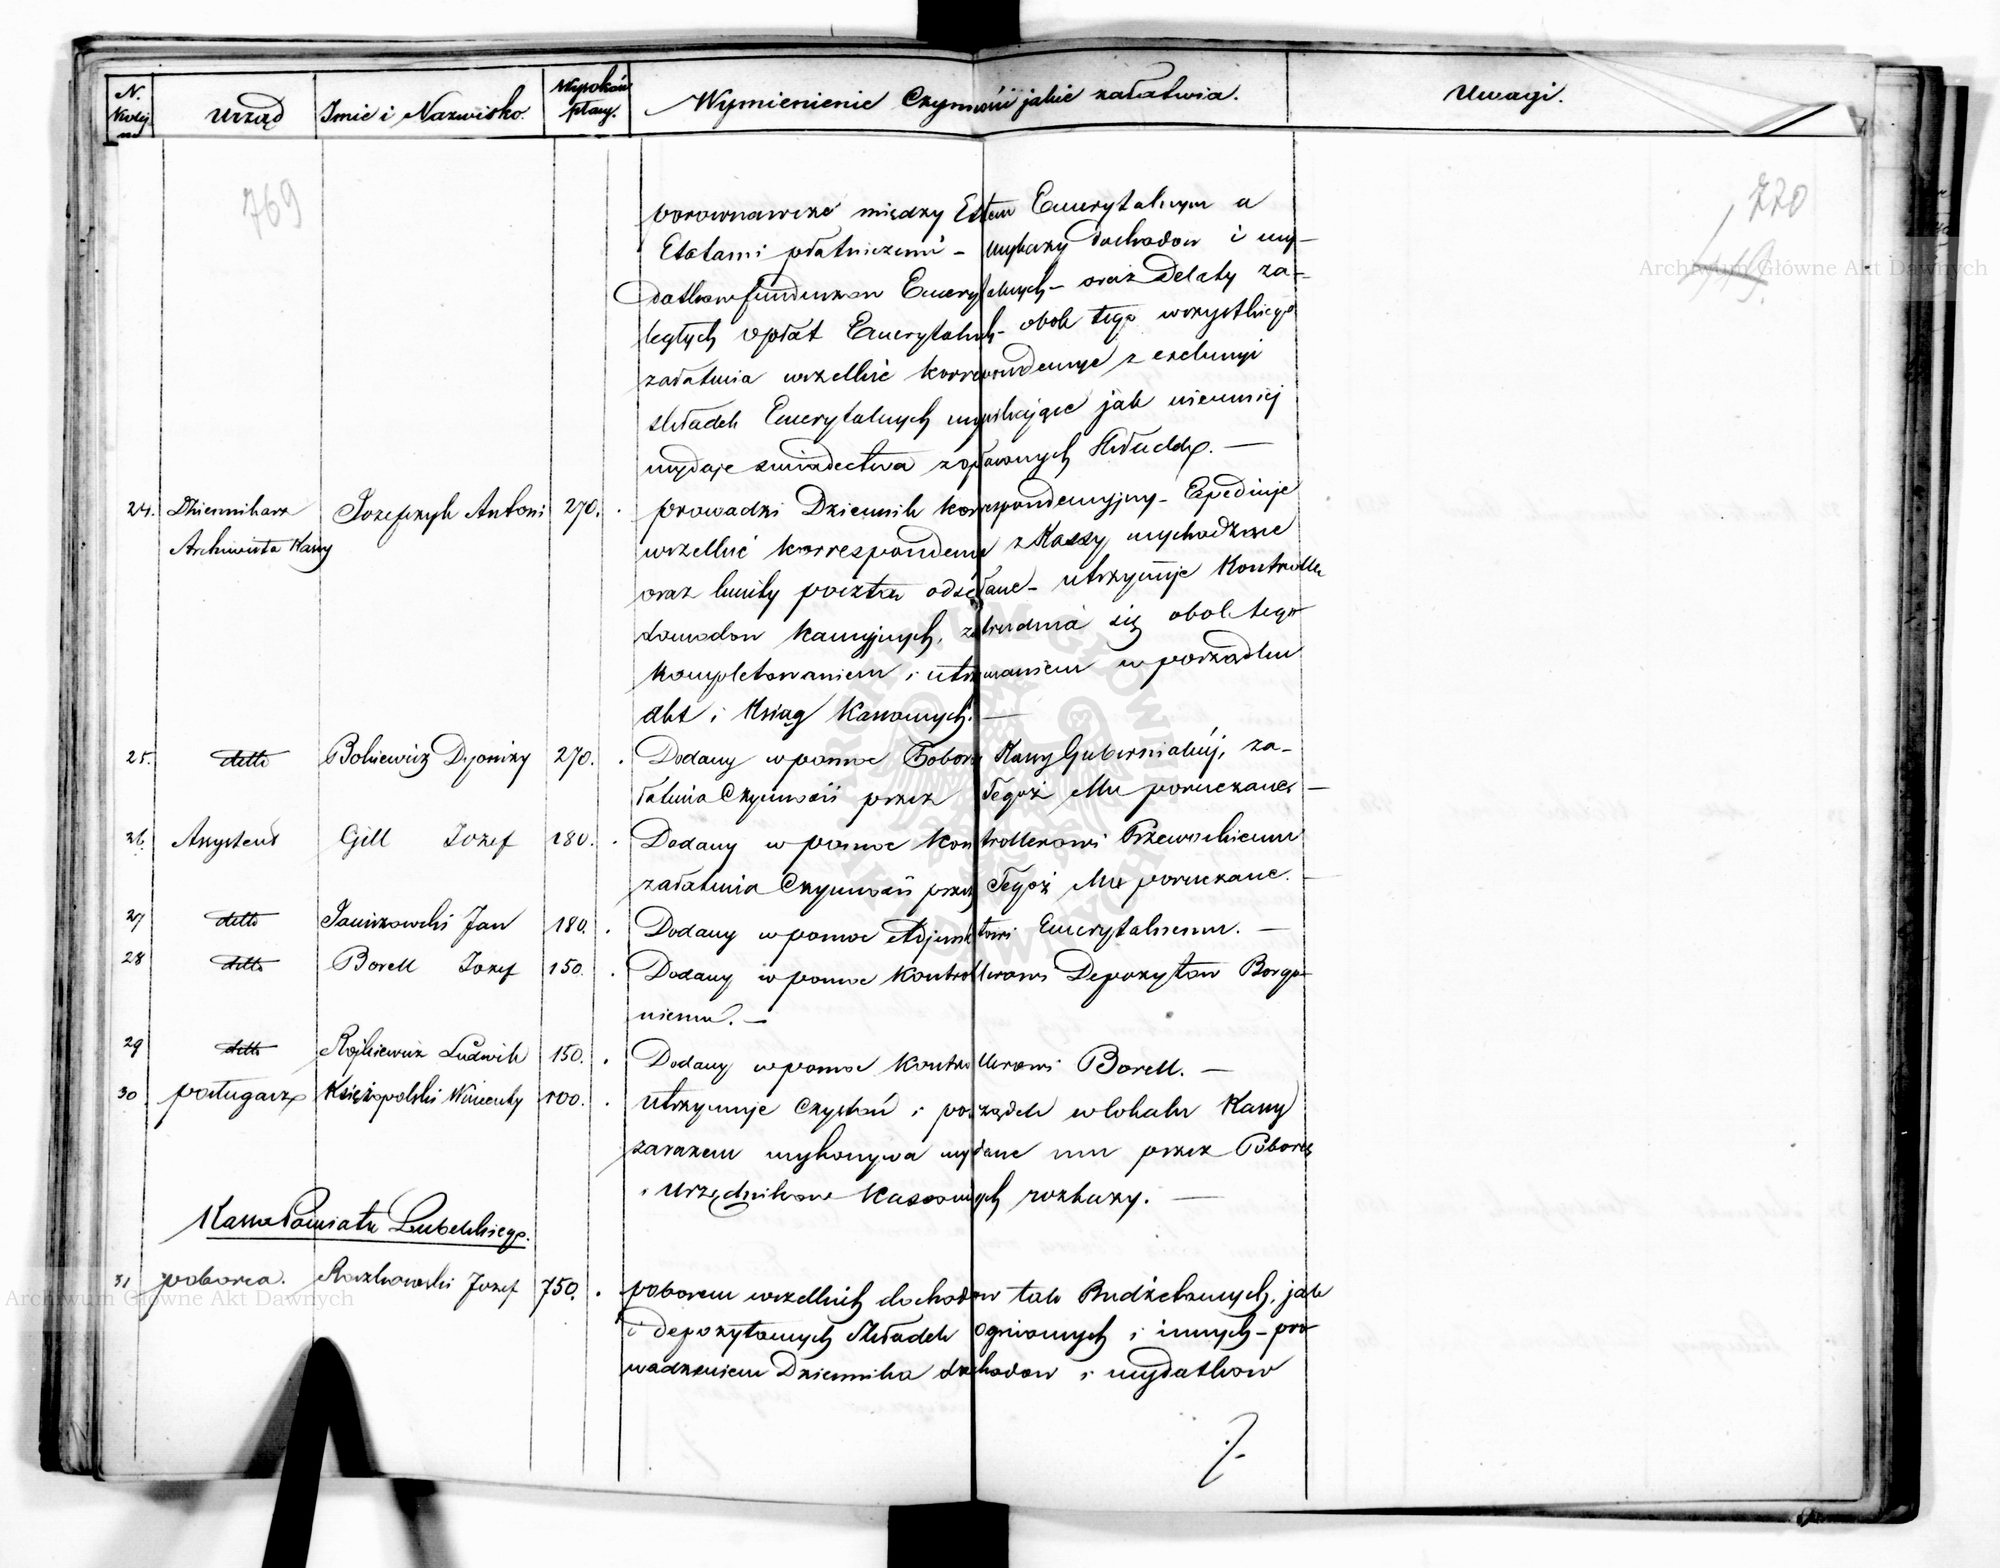 N. Kolejno Urząd Imie i Nazwisko. Wysokość płacy. Wymienienie Czynności jakie załatwia. Uwagi.
769
770
porownawcze między Etatem Emerytalnym a
Etatami płatniczemi – wykazy dochodow i wy–
datkow funduszow Emerytalnych – oraz Delaty za–
ległych opłat Emerytalnych – obok tego wszystkiego
załatwia wszelkie korrespondencye z
składek Emerytalnych wynikające jak niemniej
wydaje swiadectwa z opłaconych Składek. —
24. Dziennikarz Jozefczyk Antoni 270. prowadzi Dziennik korrespondencyjny – Expediuje
Archiwista Kassy wszelkie korrespondencye z Kassy wychodzące
oraz kwity pocztą odsełane – utrzymuje Kontrolle
dowodow Kassyjnych, zatrudnia się obok tego
kompletowaniem i utrzymaniem w porządku
Akt i Ksiąg Kassowych. —
25. detto Bokiewicz Dyonizy 270. Dodany w pomoc Poborcy Kassy Gubernialnéj, za–
łatwia Czynności przez Tegoż Mu poruczane —
26. Assystent Gill Jozef 180. Dodany w pomoc Kontrollerowi Przewoskiemu
załatwia Czynności przez Tegoż Mu poruczane. —
27 detto Janiszowski Jan 180. Dodany w pomoc Adjunktowi Emerytalnemu. —
28 detto Borell Jozef 150. Dodany w pomoc Kontrollerowi Depozytow Borgo–
niemu. —
29 detto Rojkiewicz Ludwik 150. Dodany w pomoc Kontrollerowi Borell. —
30. posługacz Księżopolski Wincenty 100. Utrzymuje Czystość i porządek w lokalu Kassy
zarazem wykonywa wydane mu przez Poborcę
i Urzędnikow Kassowych rozkazy. —
Kassa Powiatu Lubelskiego.
31 poborca. Roszkowski Jozef 750. poborem wszelkich dochodow tak Budżetowych, jak
i depozytowych Składek Ogniowych i innych – pro–
wadzeniem Dziennika dochodow i wydatkow
Archiwum Główne Akt Dawnych
Archiwum Główne Akt Dawnych
ARCHIWUM GŁÓWNE AKT DAWNYCH